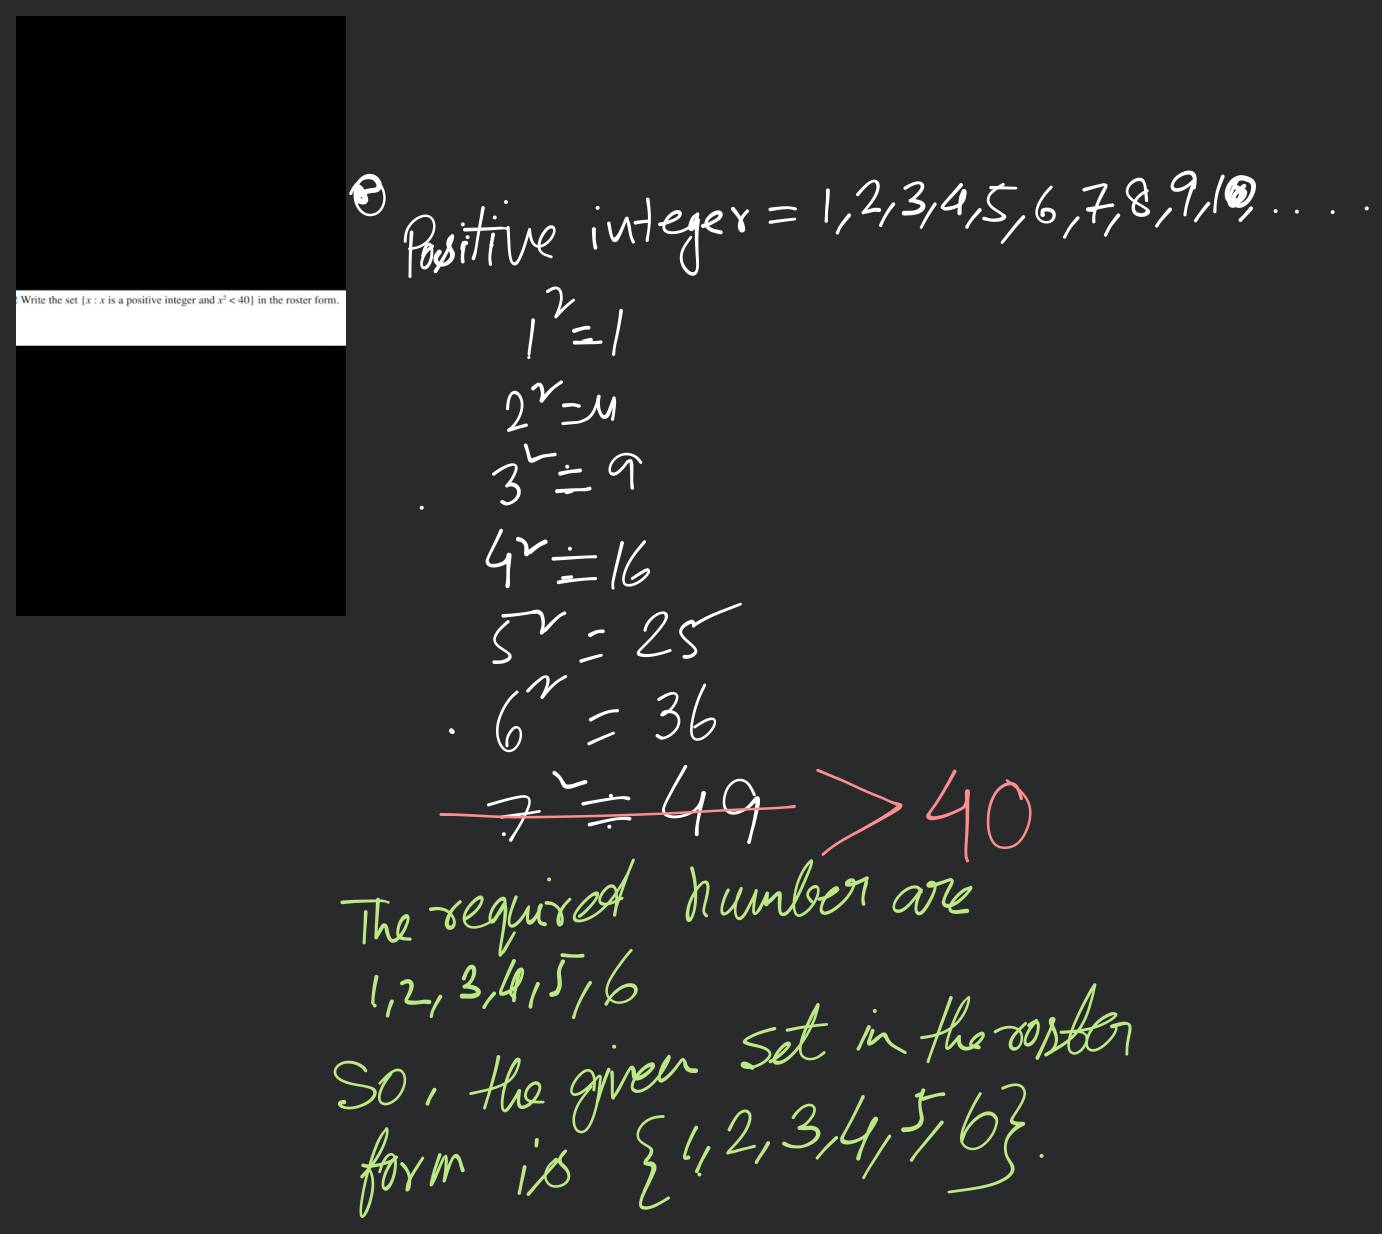 Write the set {x : x is a positive integer and x² < 40} in the roster form.
Positive integer = 1,2,3,4,5,6,7,8,9,10,....
1² = 1
2² = 4
3² = 9
4² = 16
5² = 25
6² = 36
7² = 49 > 40
The required number are
1,2,3,4,5,6
So, the given set in the roster
form is {1,2,3,4,5,6}.